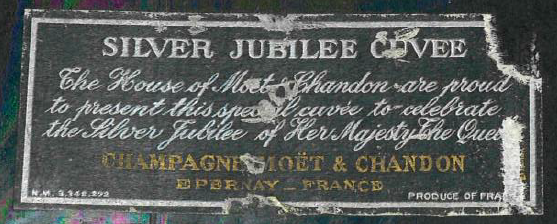 SILVER JUBILEE CUVEE
The House of Moët & Chandon are proud
to present this special cuvée to celebrate
the Silver Jubilee of Her Majesty The Queen
CHAMPAGNE MOËT & CHANDON
EPERNAY _ FRANCE
N.M. 3.342.292 PRODUCE OF FRA